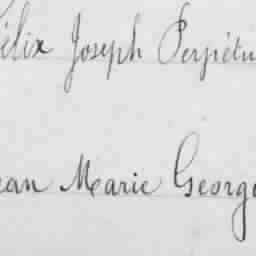 élix Joseph Perpétu
ean Marie George